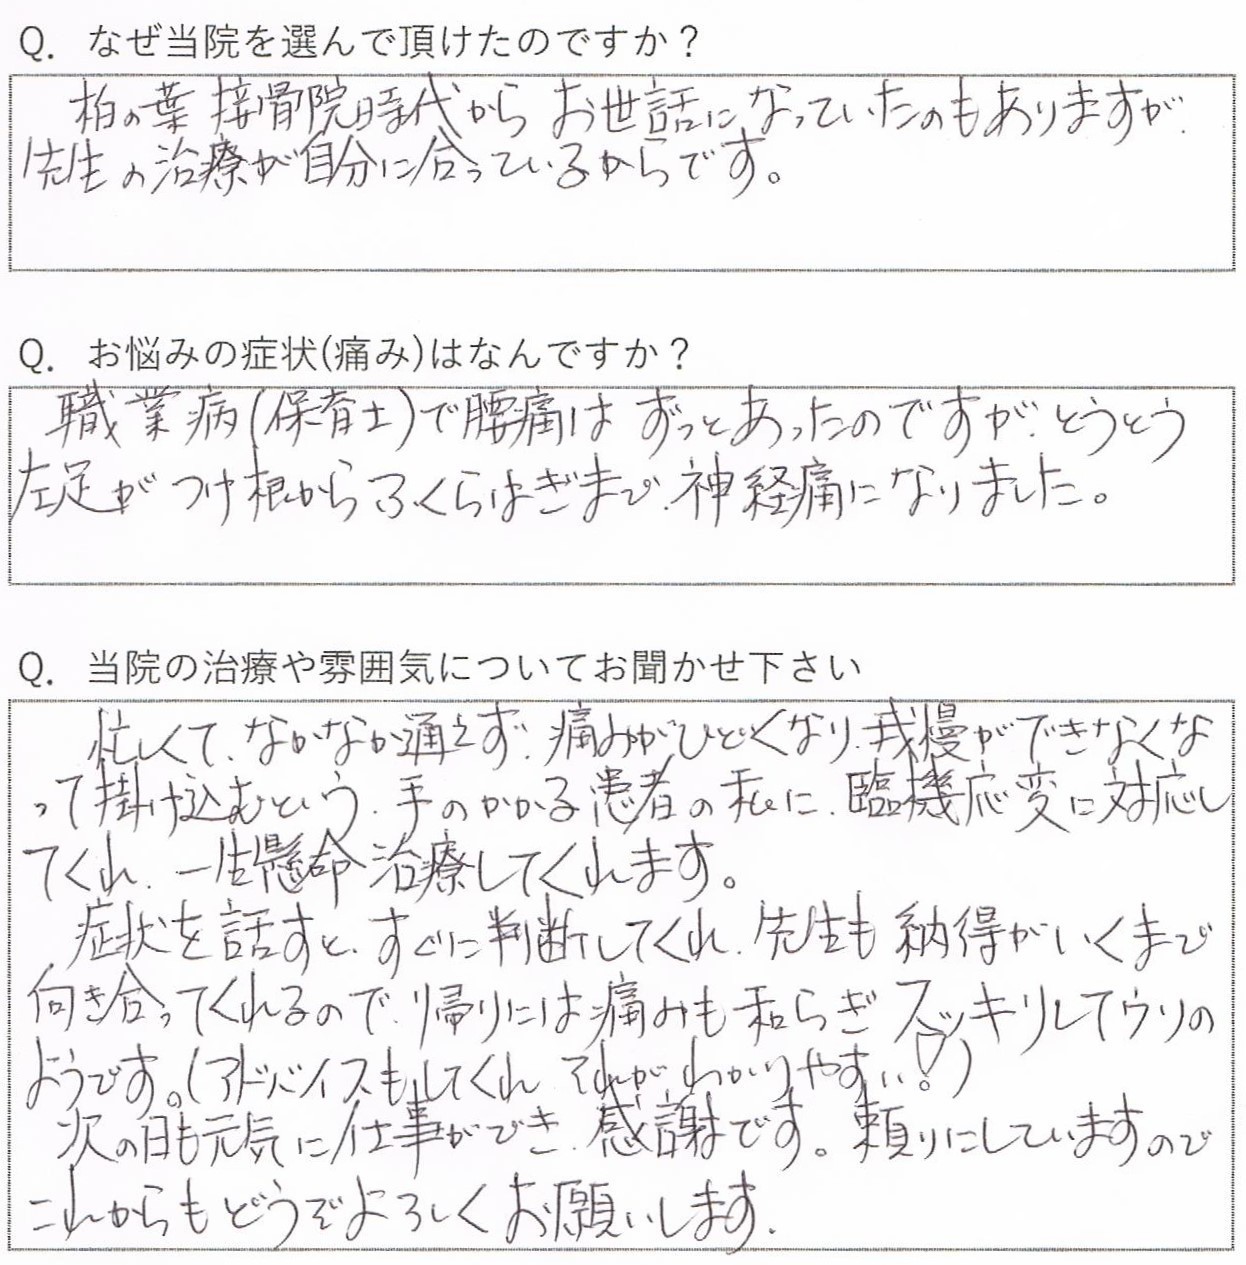 Q. なぜ当院を選んで頂けたのですか？
柏の葉接骨院時代からお世話になっていたのもありますが、
先生の治療が自分に合っているからです。
Q. お悩みの症状(痛み)はなんですか？
職業病(保育士)で腰痛はずっとあったのですが、とうとう
左足がつけ根からふくらはぎまで、神経痛になりました。
Q. 当院の治療や雰囲気についてお聞かせ下さい
忙しくて、なかなか通えず、痛みがひどくなり、我慢ができなくな
って掛け込むという、手のかかる患者の私に、臨機応変に対応し
てくれ、一生懸命治療してくれます。
症状を話すと、すぐに判断してくれ、先生も納得がいくまで
向き合ってくれるので、帰りには痛みも和らぎスッキリしてウソの
ようです。(アドバイスもしてくれ、それがわかりやすい！)
次の日も元気に仕事ができ、感謝です。頼りにしていますので
これからもどうぞよろしくお願いします。